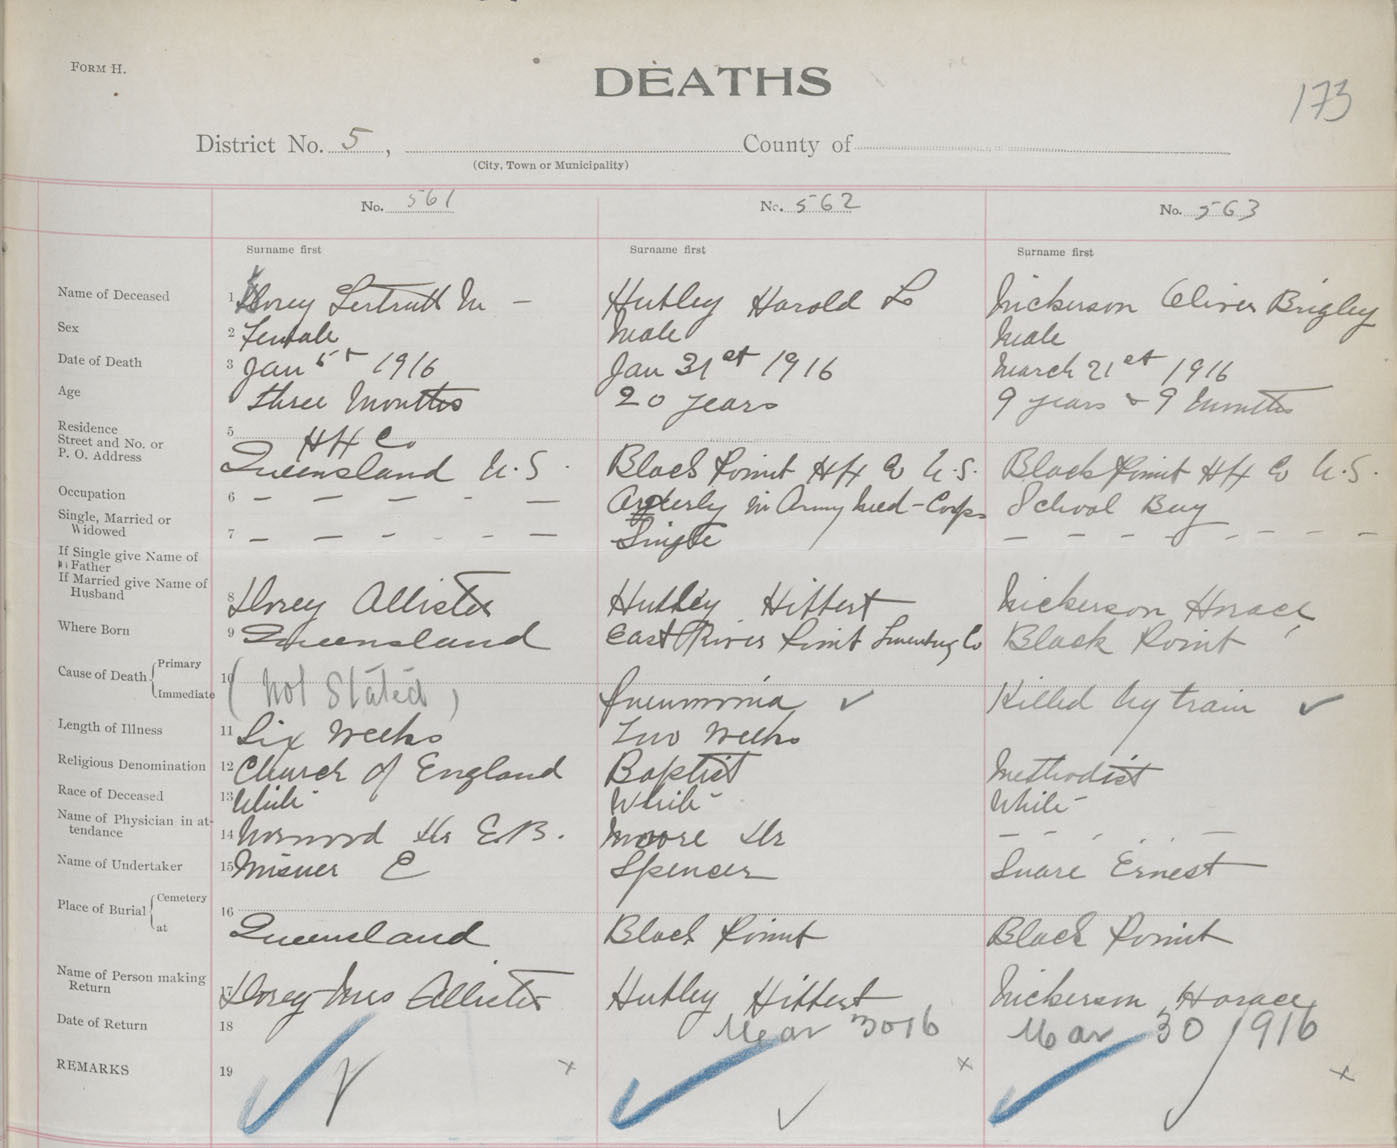 FORM H.
DEATHS
173
District No. 5, County of
(City, Town or Municipality)
No. 561 No. 562 No. 563
Surname first Surname first Surname first
Name of Deceased 1 Dorey Gertruth M – Hubley Harold L Nickerson Oliver Brigley
Sex 2 Female Male Male
Date of Death 3 Jan 5th 1916 Jan 31st 1916 March 21st 1916
Age Three Months 20 years 9 years & 9 Months
Residence
Street and No. or
P. O. Address
5 Hfx Co
Queensland N.S. Black Point Hfx Co N.S. Black Point Hfx Co N.S.
Occupation 6 – – – – – in Army Med-Corps School Boy
Single, Married or
Widowed
7 – – – – – – Single – – – – – – –
If Single give Name of
Father
If Married give Name of
Husband
8 Dorey Allister Hubley Hibbert Nickerson Horace
Where Born 9 Queensland East River Point Lunenburg Co Black Point
Cause of Death { Primary
Immediate
10 (Not Stated) Pneumonia ✓ Killed by train ✓
Length of Illness 11 Six Weeks Two Weeks
Religious Denomination 12 Church of England Baptist Methodist
Race of Deceased 13 White White White
Name of Physician in at-
tendance
14 Norwood Dr E.B. Moore Dr – – – – –
Name of Undertaker 15 Misner E Spencer Snare Ernest
Place of Burial { Cemetery
at
16 Queensland Black Point Black Point
Name of Person making
Return
17 Dorey Mrs Allister Hubley Hibbert Nickerson Horace
Date of Return 18 Mar 30 16 Mar 30 1916
REMARKS 19 ✓ ✓ x ✓ ✓ x ✓ ✓ x